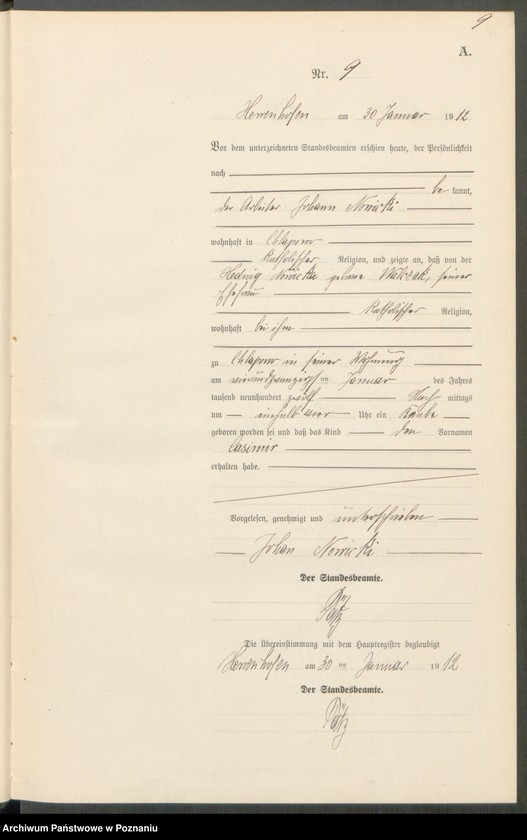 9
A.
Nr. 9
Herrenhofen am 30 Januar 1912
Vor dem unterzeichneten Standesbeamten erschien heute, der Persönlichkeit
nach
be kannt,
der Arbeiter Johann Nowicki
wohnhaft in Chlapowo
Katholischer Religion, und zeigte an, daß von der
Hedwig Nowicki geborene Walczak, seiner
Ehefrau
Katholischer Religion,
wohnhaft bei ihm
zu Chlapowo in seiner Wohnung
am vierundzwanzigsten Januar des Jahres
tausend neunhundert zwölf Nach mittags
um einhalb vier Uhr ein Knabe
geboren worden sei und daß das Kind den Vornamen
Casimir
erhalten habe.
Vorgelesen, genehmigt und unterschrieben
Johan Nowicki
Der Standesbeamte.
Die Übereinstimmung mit dem Hauptregister beglaubigt
Herrenhofen am 30 ten Januar 1912
Der Standesbeamte.
Archiwum Państwowe w Poznaniu